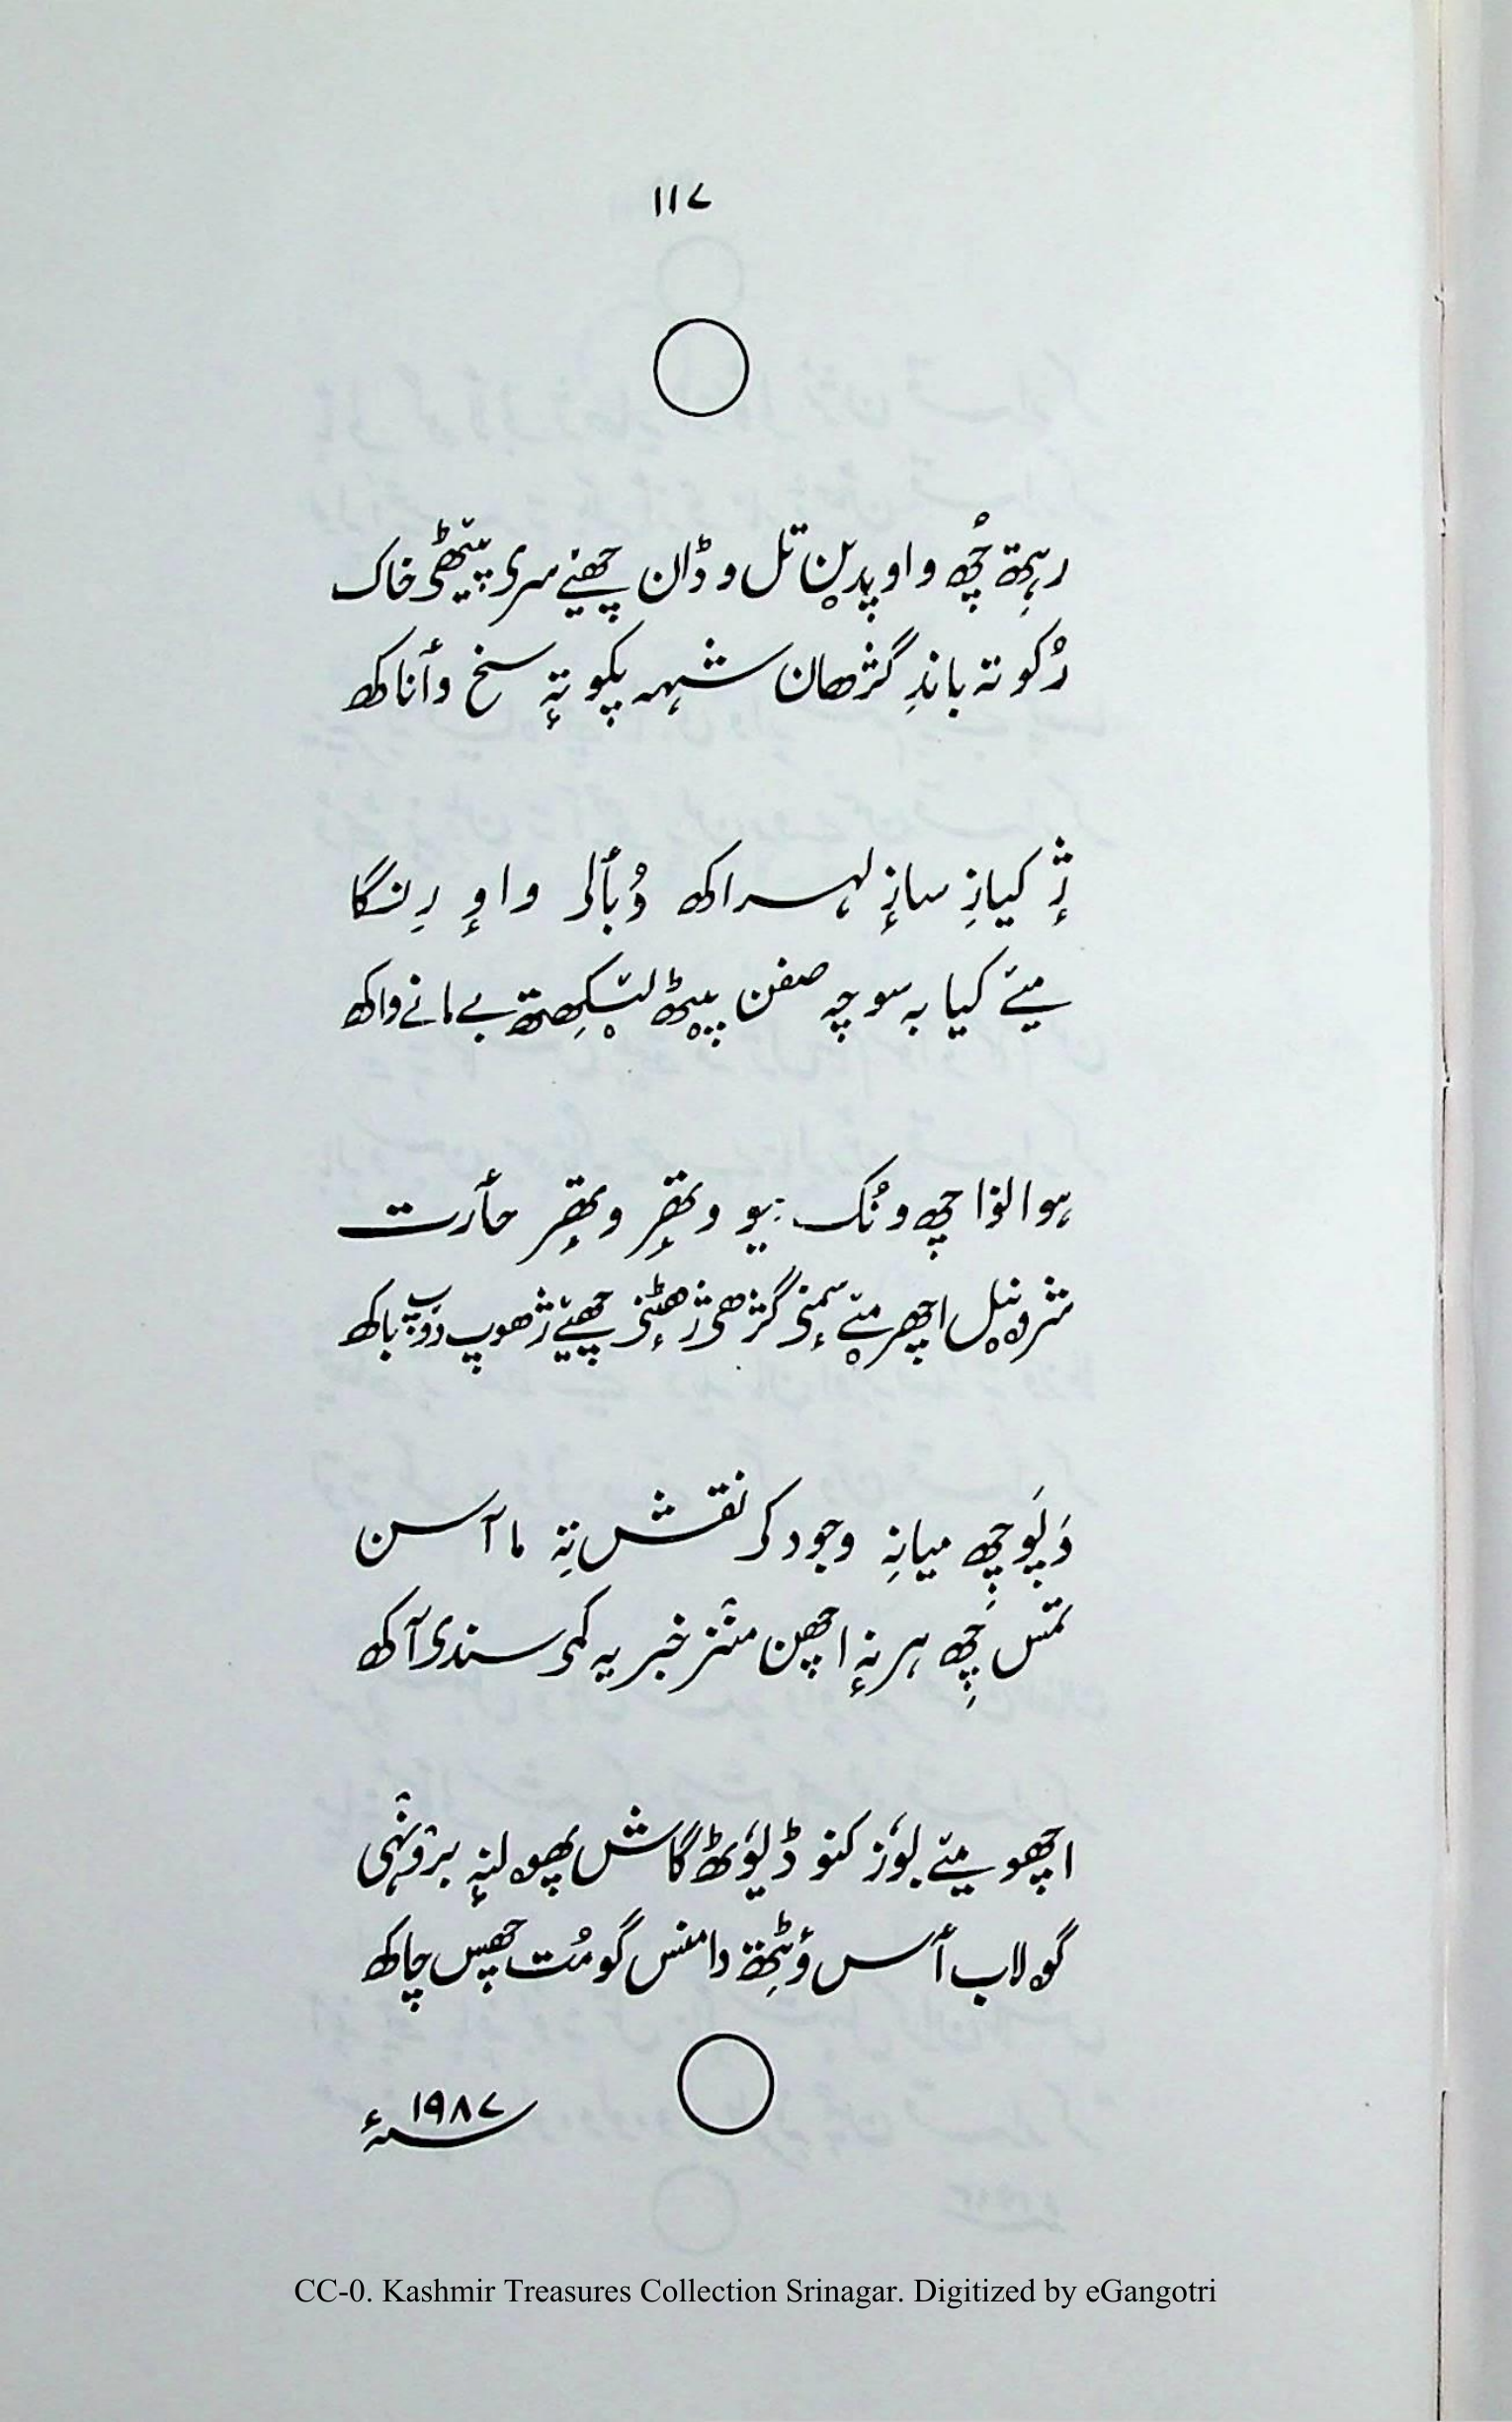 ۱۱۷
رہتھ چُھ واو پدین تل وڈان چھنے سری پیٹھی خاک
رُکو تہ باندِ گژھان شہہ پکو تہٕ سخ وأناکھ
ژٕ کیازِ سازٕ لہراکھ دُبألی واوٕ رِنگا
میے کیا بہ سوچہ صفن پیٹھ لیکھتھ بے مانے واکھ
ہوا لوٚا چھ ونُک یو وتھٕر وتھٕر حأرت
اچھر میے گژھی چھیے ژھوپ باکھ
دَپو چھ میانہِ وجودکی نقش تہِ ما آسن
تمس چِھ ہرنہٕ اچھن منٛز خبر یہ کمی سندی آکھ
اچھو میے بوٗز کنو ڈیوٗٹھ گاش پھولنہٕ برونٛہی
گولاب أس وُٹھتھ دامنس گومُت چھس چاکھ
۱۹۸۷ء
CC-0. Kashmir Treasures Collection Srinagar. Digitized by eGangotri